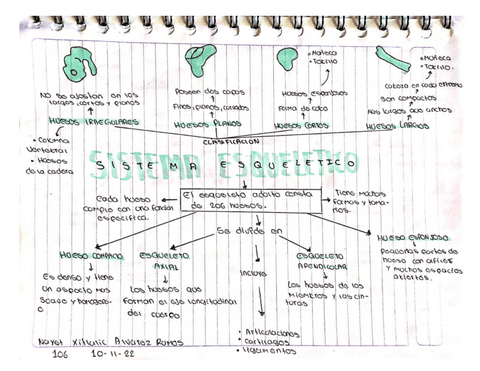 • Muñeca
• Tobillo.
• Muñeca
• Tobillo.
No se ajustan en los
largos, cortos y planos
HUESOS IRREGULARES
• Columna
Vertebral
• Huesos
de la cadera
Poseen dos capas
Finos, planos, curvados
HUESOS PLANOS
Huesos esponjosos
Forma de cubo
HUESOS CORTOS
Cabeza en cada extremo
Son compactos
Mas largos que anchos
HUESOS LARGOS
CLASIFICACION
SISTEMA ESQUELETICO
Cada hueso
cumple con una función
especifica.
El esqueleto adulto consta
de 206 huesos.
Tiene muchas
formas y tama-
ños.
Se divide en
HUESO COMPACTO
Es denso y tiene
un aspecto mas
Suave y homogene-
o
ESQUELETO
AXIAL
Los huesos que
forman el eje longitudinal
del cuerpo
Incluye
• Articulaciones
• Cartilagos
• ligamentos
ESQUELETO
APENDICULAR
Los huesos de los
miembros y las cin-
turas
HUESO ESPONJOSO
Pequeñas partes de
hueso con
y muchos espacios
abiertos.
Alvarez Ramos
106 10-11-22